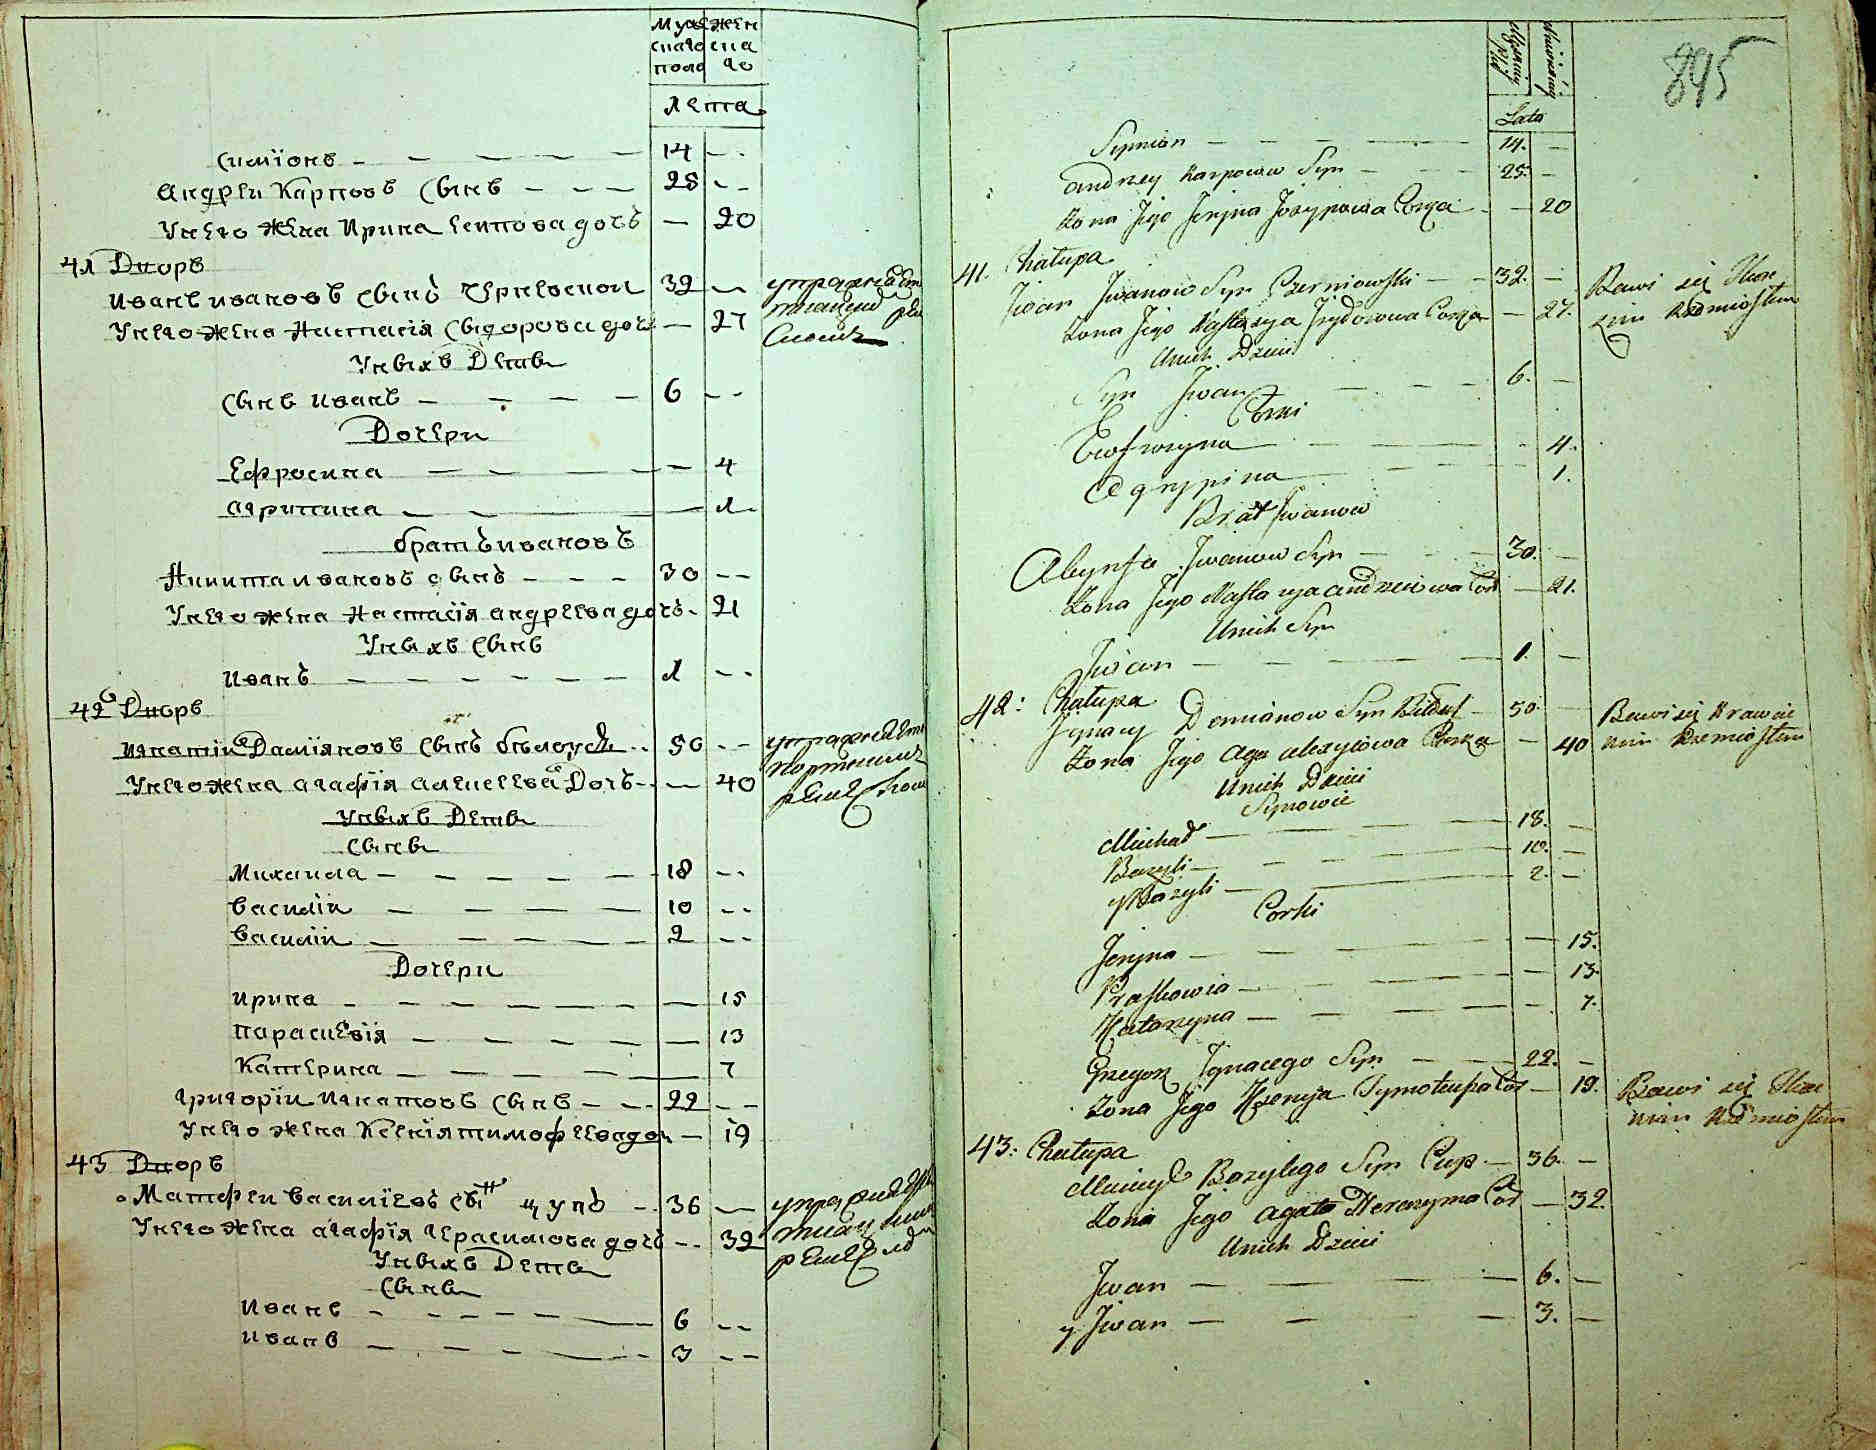 Муже жен
скаго ска
пола го
Лета
Симїонъ — — — — — 14 — -
Андреи Карповъ Сынъ — — — 25 — -
У него Жена Ирина Есипова дочъ — 20
41 Дворъ
Иванъ ивановъ Сынъ Черневскои 32 —
У него жена Настасiя Сидорова дочь — 27
У нихъ Дети
Сынъ иванъ — — — — 6 - -
Дочери
Ефросина — — — — — 4
агрипина — — — 1
братъ ивановъ
Никита ивановъ сынъ — — — 30 — -
У него жена Настасiя андреева дочъ - 21
У нихъ Сынъ
Иванъ — — — — — — 1 - -
42 Дворъ
Игнатiи Дамiяновъ Сынъ белоусъ - - 50 - -
У него жена агафiя алексеева Дочъ - - — 40
У нихъ Дети
Сыны
Михаила — — — — — 18 - -
Василiи — — — — 10 - -
Василiи — — — — 2 - -
Дочери
ирина — — — — — — 15
параскевiя — — — — — 13
Катерина — — — — — 7
Григорiи игнатовъ Сынъ — — - 22 — -
У него жена Ксенiя тимофеева доч — 19
43 Дворъ
Матфеи Василiевъ Сынъ цупъ — 36 —
У него жена агафiя Герасимова дочъ - - 32
У нихъ Дети
Сыны
Иванъ — — — — — — 6 - -
иванъ — — — — — 3 - -
895
Lata
Symion — — — — 14. —
Andrzey Karpowow Syn — — — 25. —
Zona Jego Jryna Jozypowa Corga — — 20
41. Chałupa
Jwan Jwanow Syn Czerniowski — — 32. — Bawi się Tkac
Zona Jego Nastazya Jzydorowa Corga — 27. kim Rzemiosłem
Unich Dzieci
Syn Jwan — — — 6. —
Corki
Ewfrozyna — — — — 4.
Agrypina — — — — 1.
Brat Jwanow
Jwanow Syn — — — 30. —
Zona Jego Nastazya Andrzeiowa Cor — 21.
Unich Syn
Jwan — — — — 1. —
42: Chałupa
Jgnacy Demianow Syn — 50. — Bawi się Krawiec
Zona Jego Aga Alexyiowa Corka — 40 kim Rzemiosłem
Unich Dzieci
Synowie
Michał — — — — 18. —
Bazyli — — — — 10. —
y Bazyli — — — 2. —
Corki
Jryna — — — — 15.
Praskowia — — — — 13.
Katarzyna — — — — 7.
Grzegorz Jgnacego Syn — — — 22. —
Zona Jego Xenija Tymoteusza Cor — 19. Bawi się Tkac
kim Rzemiosłem
43: Chałupa
Bazylego Syn Cup — 36. —
Zona Jego Agata Hieronyma Cor — 32.
Unich Dzieci
Jwan — — — — 6. —
y Jwan — — — — 3. —